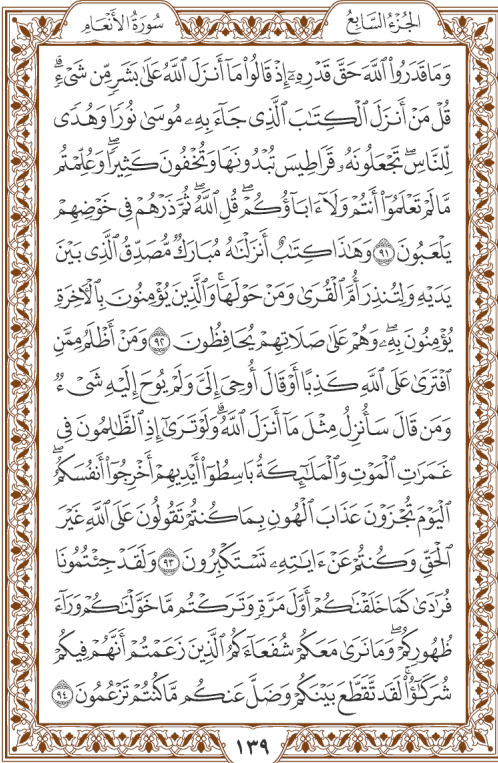 الجزء السابع سورة الأنعام
وَمَا قَدَرُوا۟ ٱللَّهَ حَقَّ قَدْرِهِۦٓ إِذْ قَالُوا۟ مَآ أَنزَلَ ٱللَّهُ عَلَىٰ بَشَرٍ مِّن شَىْءٍ ۗ
قُلْ مَنْ أَنزَلَ ٱلْكِتَـٰبَ ٱلَّذِى جَآءَ بِهِۦ مُوسَىٰ نُورًا وَهُدًى
لِّلنَّاسِ ۖ تَجْعَلُونَهُۥ قَرَاطِيسَ تُبْدُونَهَا وَتُخْفُونَ كَثِيرًا ۖ وَعُلِّمْتُم
مَّا لَمْ تَعْلَمُوٓا۟ أَنتُمْ وَلَآ ءَابَآؤُكُمْ ۖ قُلِ ٱللَّهُ ۖ ثُمَّ ذَرْهُمْ فِى خَوْضِهِمْ
يَلْعَبُونَ ٩١ وَهَـٰذَا كِتَـٰبٌ أَنزَلْنَـٰهُ مُبَارَكٌ مُّصَدِّقُ ٱلَّذِى بَيْنَ
يَدَيْهِ وَلِتُنذِرَ أُمَّ ٱلْقُرَىٰ وَمَنْ حَوْلَهَا ۚ وَٱلَّذِينَ يُؤْمِنُونَ بِٱلْـَٔاخِرَةِ
يُؤْمِنُونَ بِهِۦ ۖ وَهُمْ عَلَىٰ صَلَاتِهِمْ يُحَافِظُونَ ٩٢ وَمَنْ أَظْلَمُ مِمَّنِ
ٱفْتَرَىٰ عَلَى ٱللَّهِ كَذِبًا أَوْ قَالَ أُوحِىَ إِلَىَّ وَلَمْ يُوحَ إِلَيْهِ شَىْءٌ
وَمَن قَالَ سَأُنزِلُ مِثْلَ مَآ أَنزَلَ ٱللَّهُ ۗ وَلَوْ تَرَىٰٓ إِذِ ٱلظَّـٰلِمُونَ فِى
غَمَرَٰتِ ٱلْمَوْتِ وَٱلْمَلَـٰٓئِكَةُ بَاسِطُوٓا۟ أَيْدِيهِمْ أَخْرِجُوٓا۟ أَنفُسَكُمُ ۖ
ٱلْيَوْمَ تُجْزَوْنَ عَذَابَ ٱلْهُونِ بِمَا كُنتُمْ تَقُولُونَ عَلَى ٱللَّهِ غَيْرَ
ٱلْحَقِّ وَكُنتُمْ عَنْ ءَايَـٰتِهِۦ تَسْتَكْبِرُونَ ٩٣ وَلَقَدْ جِئْتُمُونَا
فُرَٰدَىٰ كَمَا خَلَقْنَـٰكُمْ أَوَّلَ مَرَّةٍ وَتَرَكْتُم مَّا خَوَّلْنَـٰكُمْ وَرَآءَ
ظُهُورِكُمْ ۖ وَمَا نَرَىٰ مَعَكُمْ شُفَعَآءَكُمُ ٱلَّذِينَ زَعَمْتُمْ أَنَّهُمْ فِيكُمْ
شُرَكَـٰٓؤُا۟ ۚ لَقَد تَّقَطَّعَ بَيْنَكُمْ وَضَلَّ عَنكُم مَّا كُنتُمْ تَزْعُمُونَ ٩٤
١٣٩